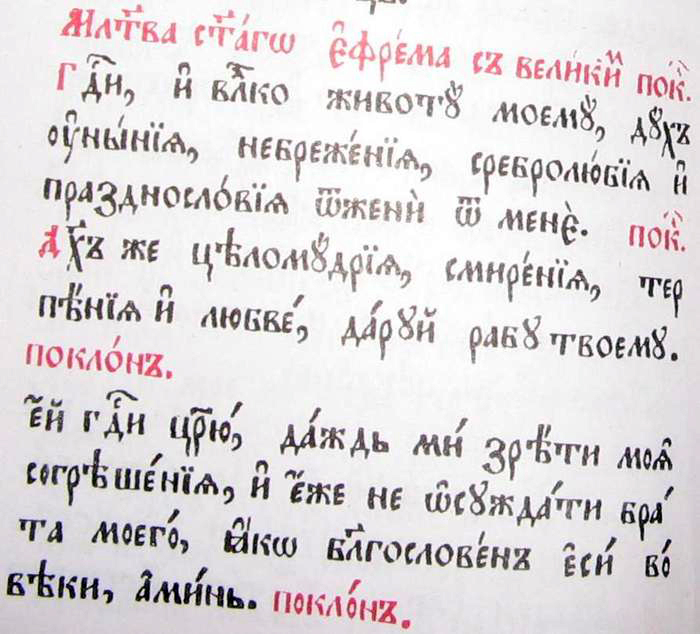 Мл҃тва ст҃а́гѡ є҆фре́ма съ вели́кїй пок҇.
Гдⷭ҇и, и҆ влⷣко животꙋ̀ моемꙋ̀, дꙋ́хъ
ѹ҆ны́нїѧ, небреже́нїѧ, сребролю́бїѧ и҆
праздносло́вїѧ ѿжени̑ ѿ мене̑. пок҇.
Дх҃ъ же цѣломꙋ́дрїѧ, смире́нїѧ, тер
пѣ́нїѧ и҆ любве́, да́рꙋй рабꙋ̀ твоемꙋ.
покло́нъ.
є҆́й гдⷭ҇и цр҃ю́, да́ждь ми́ зрѣ́ти моѧ̑
согрѣше́нїѧ, и҆ є҆́же не ѡ҆сꙋжда́ти бра́
та моего́, ꙗ҆́кѡ бл҃гослове́нъ є҆си́ во́
вѣки, а҆ми́нь. покло́нъ.